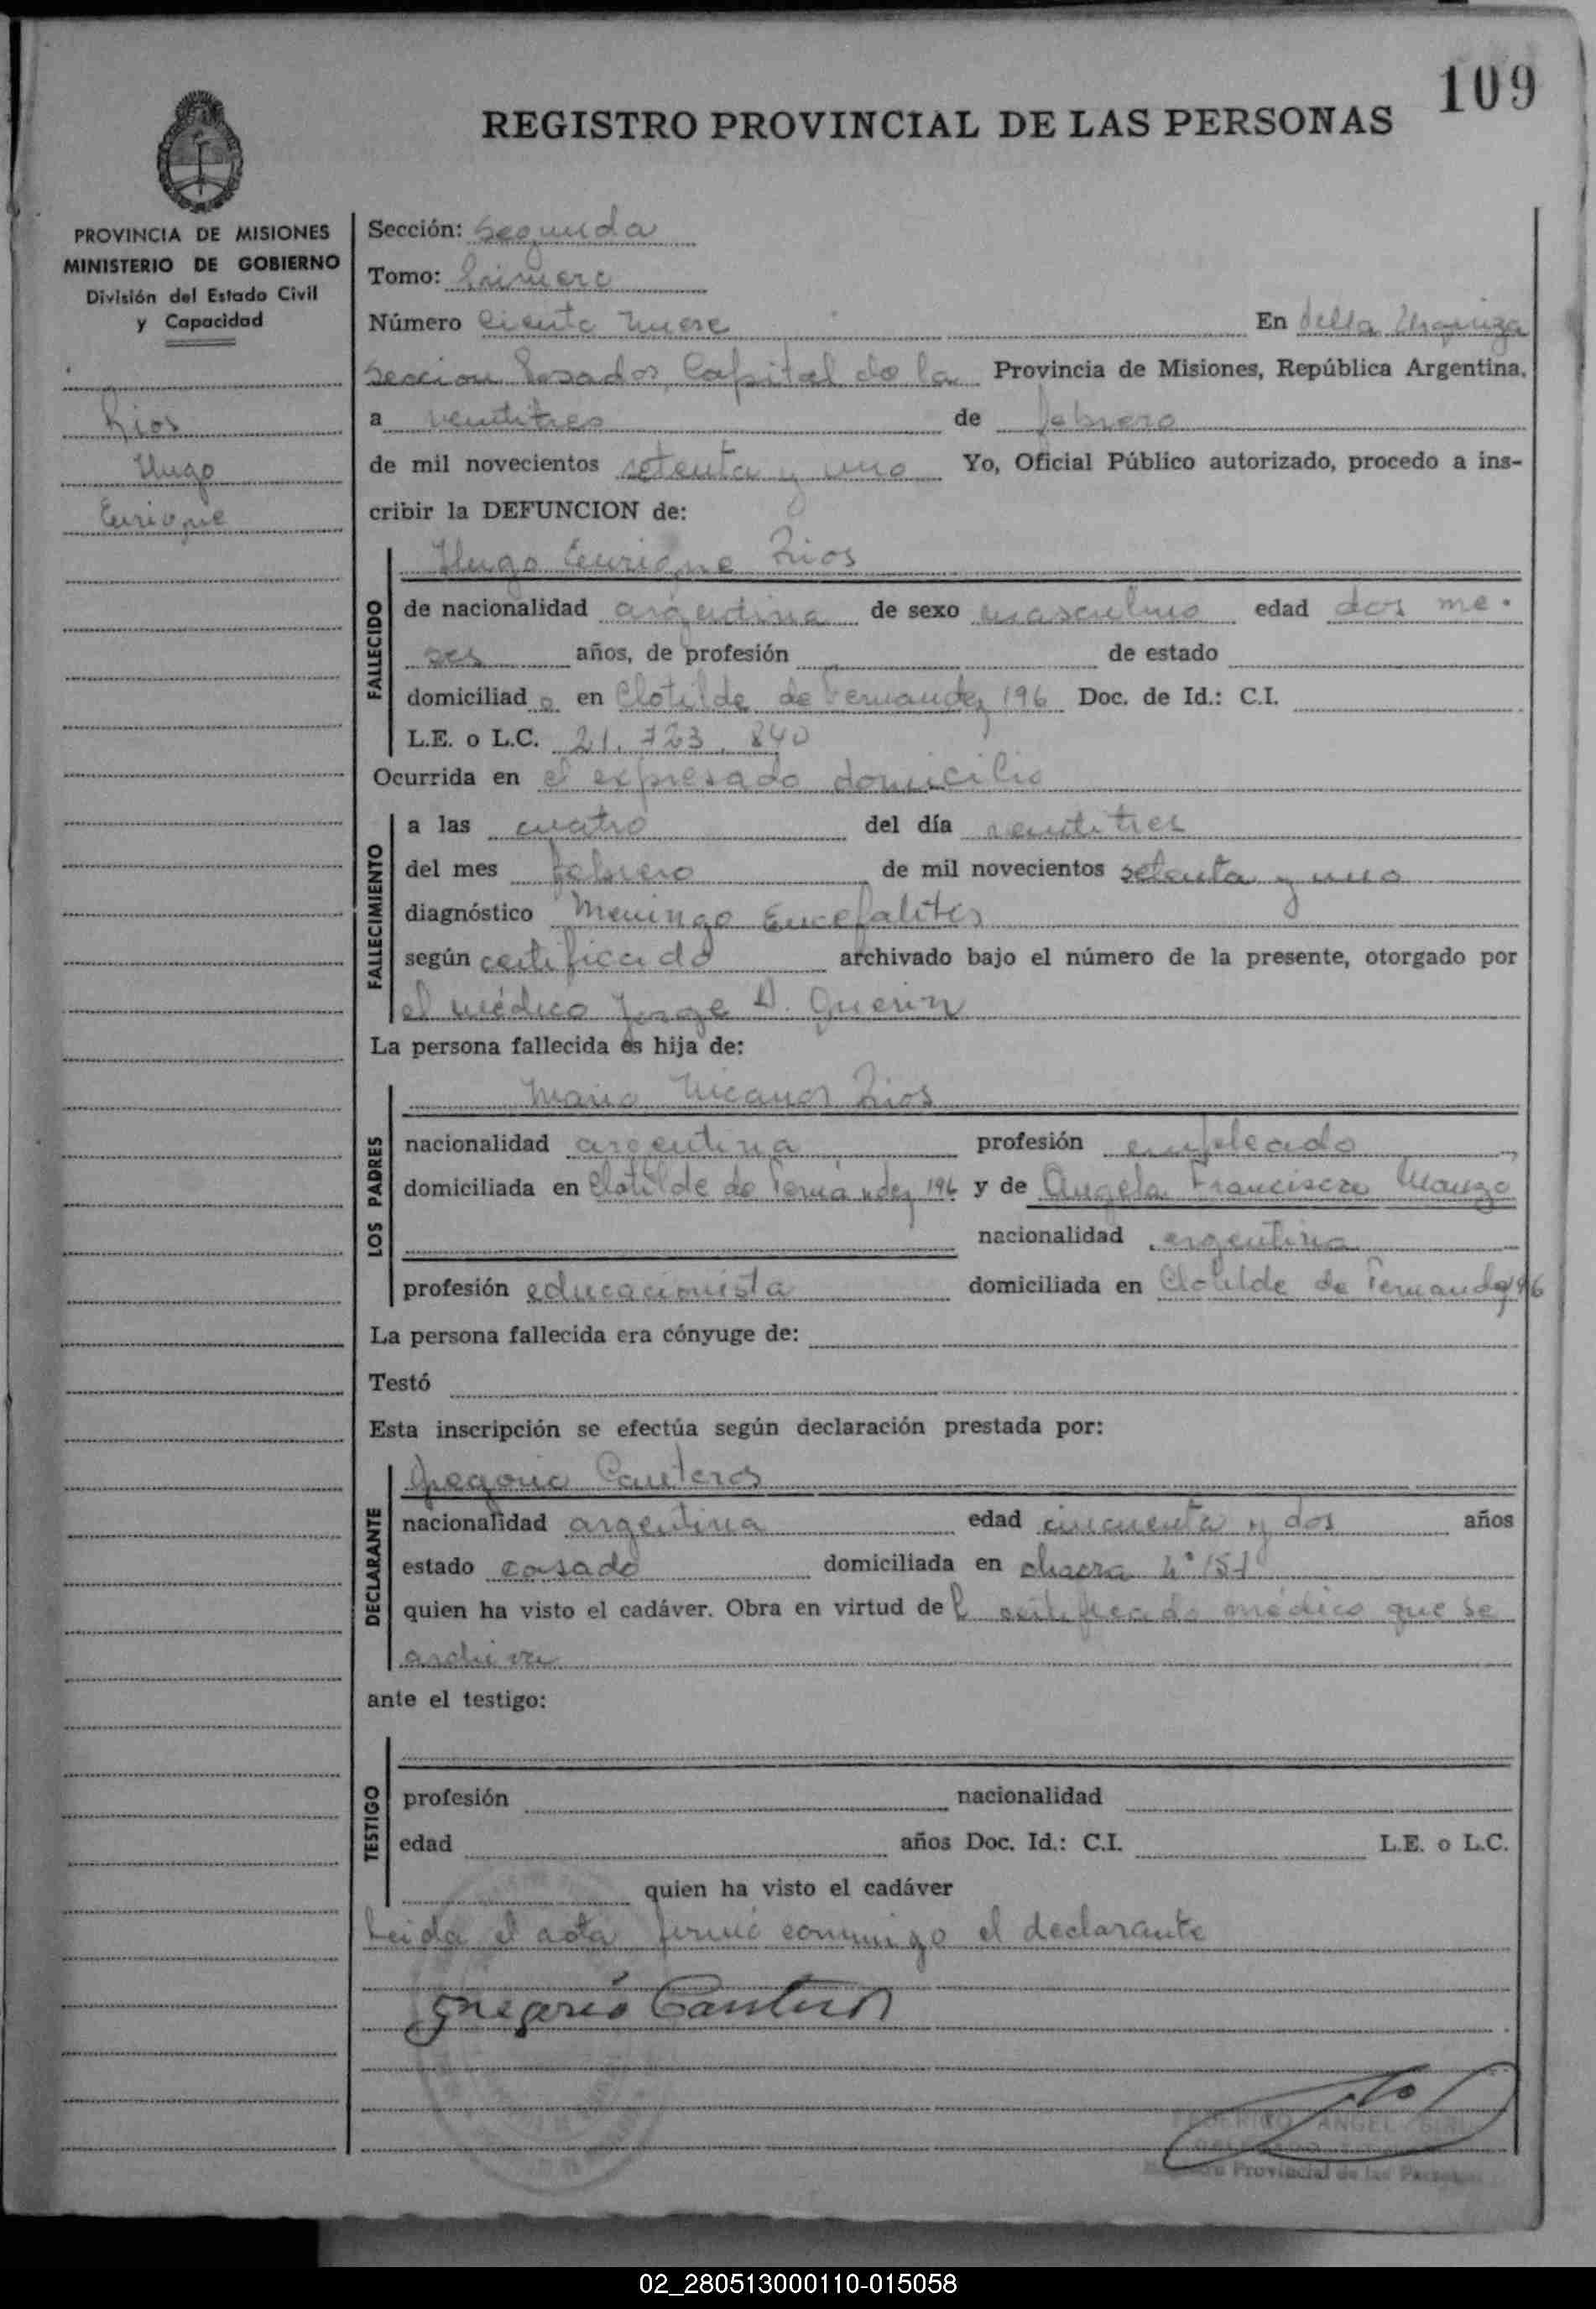 109
REGISTRO PROVINCIAL DE LAS PERSONAS
PROVINCIA DE MISIONES
MINISTERIO DE GOBIERNO
División del Estado Civil
y Capacidad
Rios
Hugo
Enrique
Sección: Segunda
Tomo: Primero
Número ciento nueve En Villa Urquiza
Seccion Posadas, Capital de la Provincia de Misiones, República Argentina,
a veintitres de febrero
de mil novecientos setenta y uno Yo, Oficial Público autorizado, procedo a ins-
cribir la DEFUNCION de:
Hugo Enrique Rios
FALLECIDO
de nacionalidad argentina de sexo masculino edad dos me-
ses años, de profesión de estado
domiciliad o en Clotilde de Fernandez 196 Doc. de Id.: C.I.
L.E. o L.C. 21.723.840
Ocurrida en el expresado domicilio
FALLECIMIENTO
a las cuatro del día veintitres
del mes febrero de mil novecientos setenta y uno
diagnóstico Meningo Encefalitis
según certificado archivado bajo el número de la presente, otorgado por
el médico Jorge D. Guerin
La persona fallecida es hija de:
LOS PADRES
Mario Nicanor Rios
nacionalidad argentina profesión empleado
domiciliada en Clotilde de Fernández 196 y de Angela Francisca Manzo
nacionalidad argentina
profesión educacionista domiciliada en Clotilde de Fernandez 196
La persona fallecida era cónyuge de:
Testó
Esta inscripción se efectúa según declaración prestada por:
DECLARANTE
Gregorio Canteros
nacionalidad argentina edad cincuenta y dos años
estado casado domiciliada en chacra Nº 151
quien ha visto el cadáver. Obra en virtud de l certificado médico que se
archiva
ante el testigo:
TESTIGO
profesión nacionalidad
edad años Doc. Id.: C.I. L.E. o L.C.
quien ha visto el cadáver
Leida el acta firmó conmigo el declarante
Gregorio Canteros
ANGEL
Provincial de las Personas
02_280513000110-015058